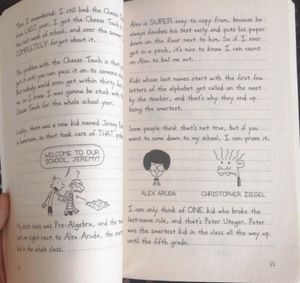 Then I remembered: I still had the Cheese T
from LAST year. I got the Cheese Touch o
the last week of school, and over the summer
COMPLETELY forgot about it.
The problem with the Cheese Touch is that yo
got it until you can pass it on to someone e
But nobody would even get within thirty fe
me, so I knew I was gonna be stuck with
Cheese Touch for the whole school year.
Luckily, there was a new kid named Jeremy
a homeroom, so that took care of THAT
WELCOME TO OUR
SCHOOL, JEREMY!
My first class was Pre-Algebra, and the
put me right next to Alex Aruda, the smar
kid in the whole class.
Alex is SUPER easy to copy from, because he
always finishes his test early and puts his paper
down on the floor next to him. So if I ever
get in a pinch, it's nice to know I can count
on Alex to bail me out.
Kids whose last names start with the first few
letters of the alphabet get called on the most
by the teacher, and that's why they end up
being the smartest.
Some people think that's not true, but if you
want to come down to my school, I can prove it.
ALEX ARUDA
CHRISTOPHER ZIEGEL
I can only think of ONE kid who broke the
last-name rule, and that's Peter Uteger. Peter
was the smartest kid in the class all the way up
until the fifth grade.
11